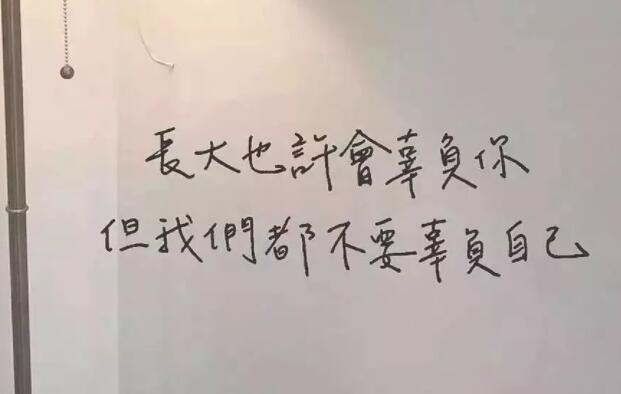 長大也許會辜負你
但我們都不要辜負自己